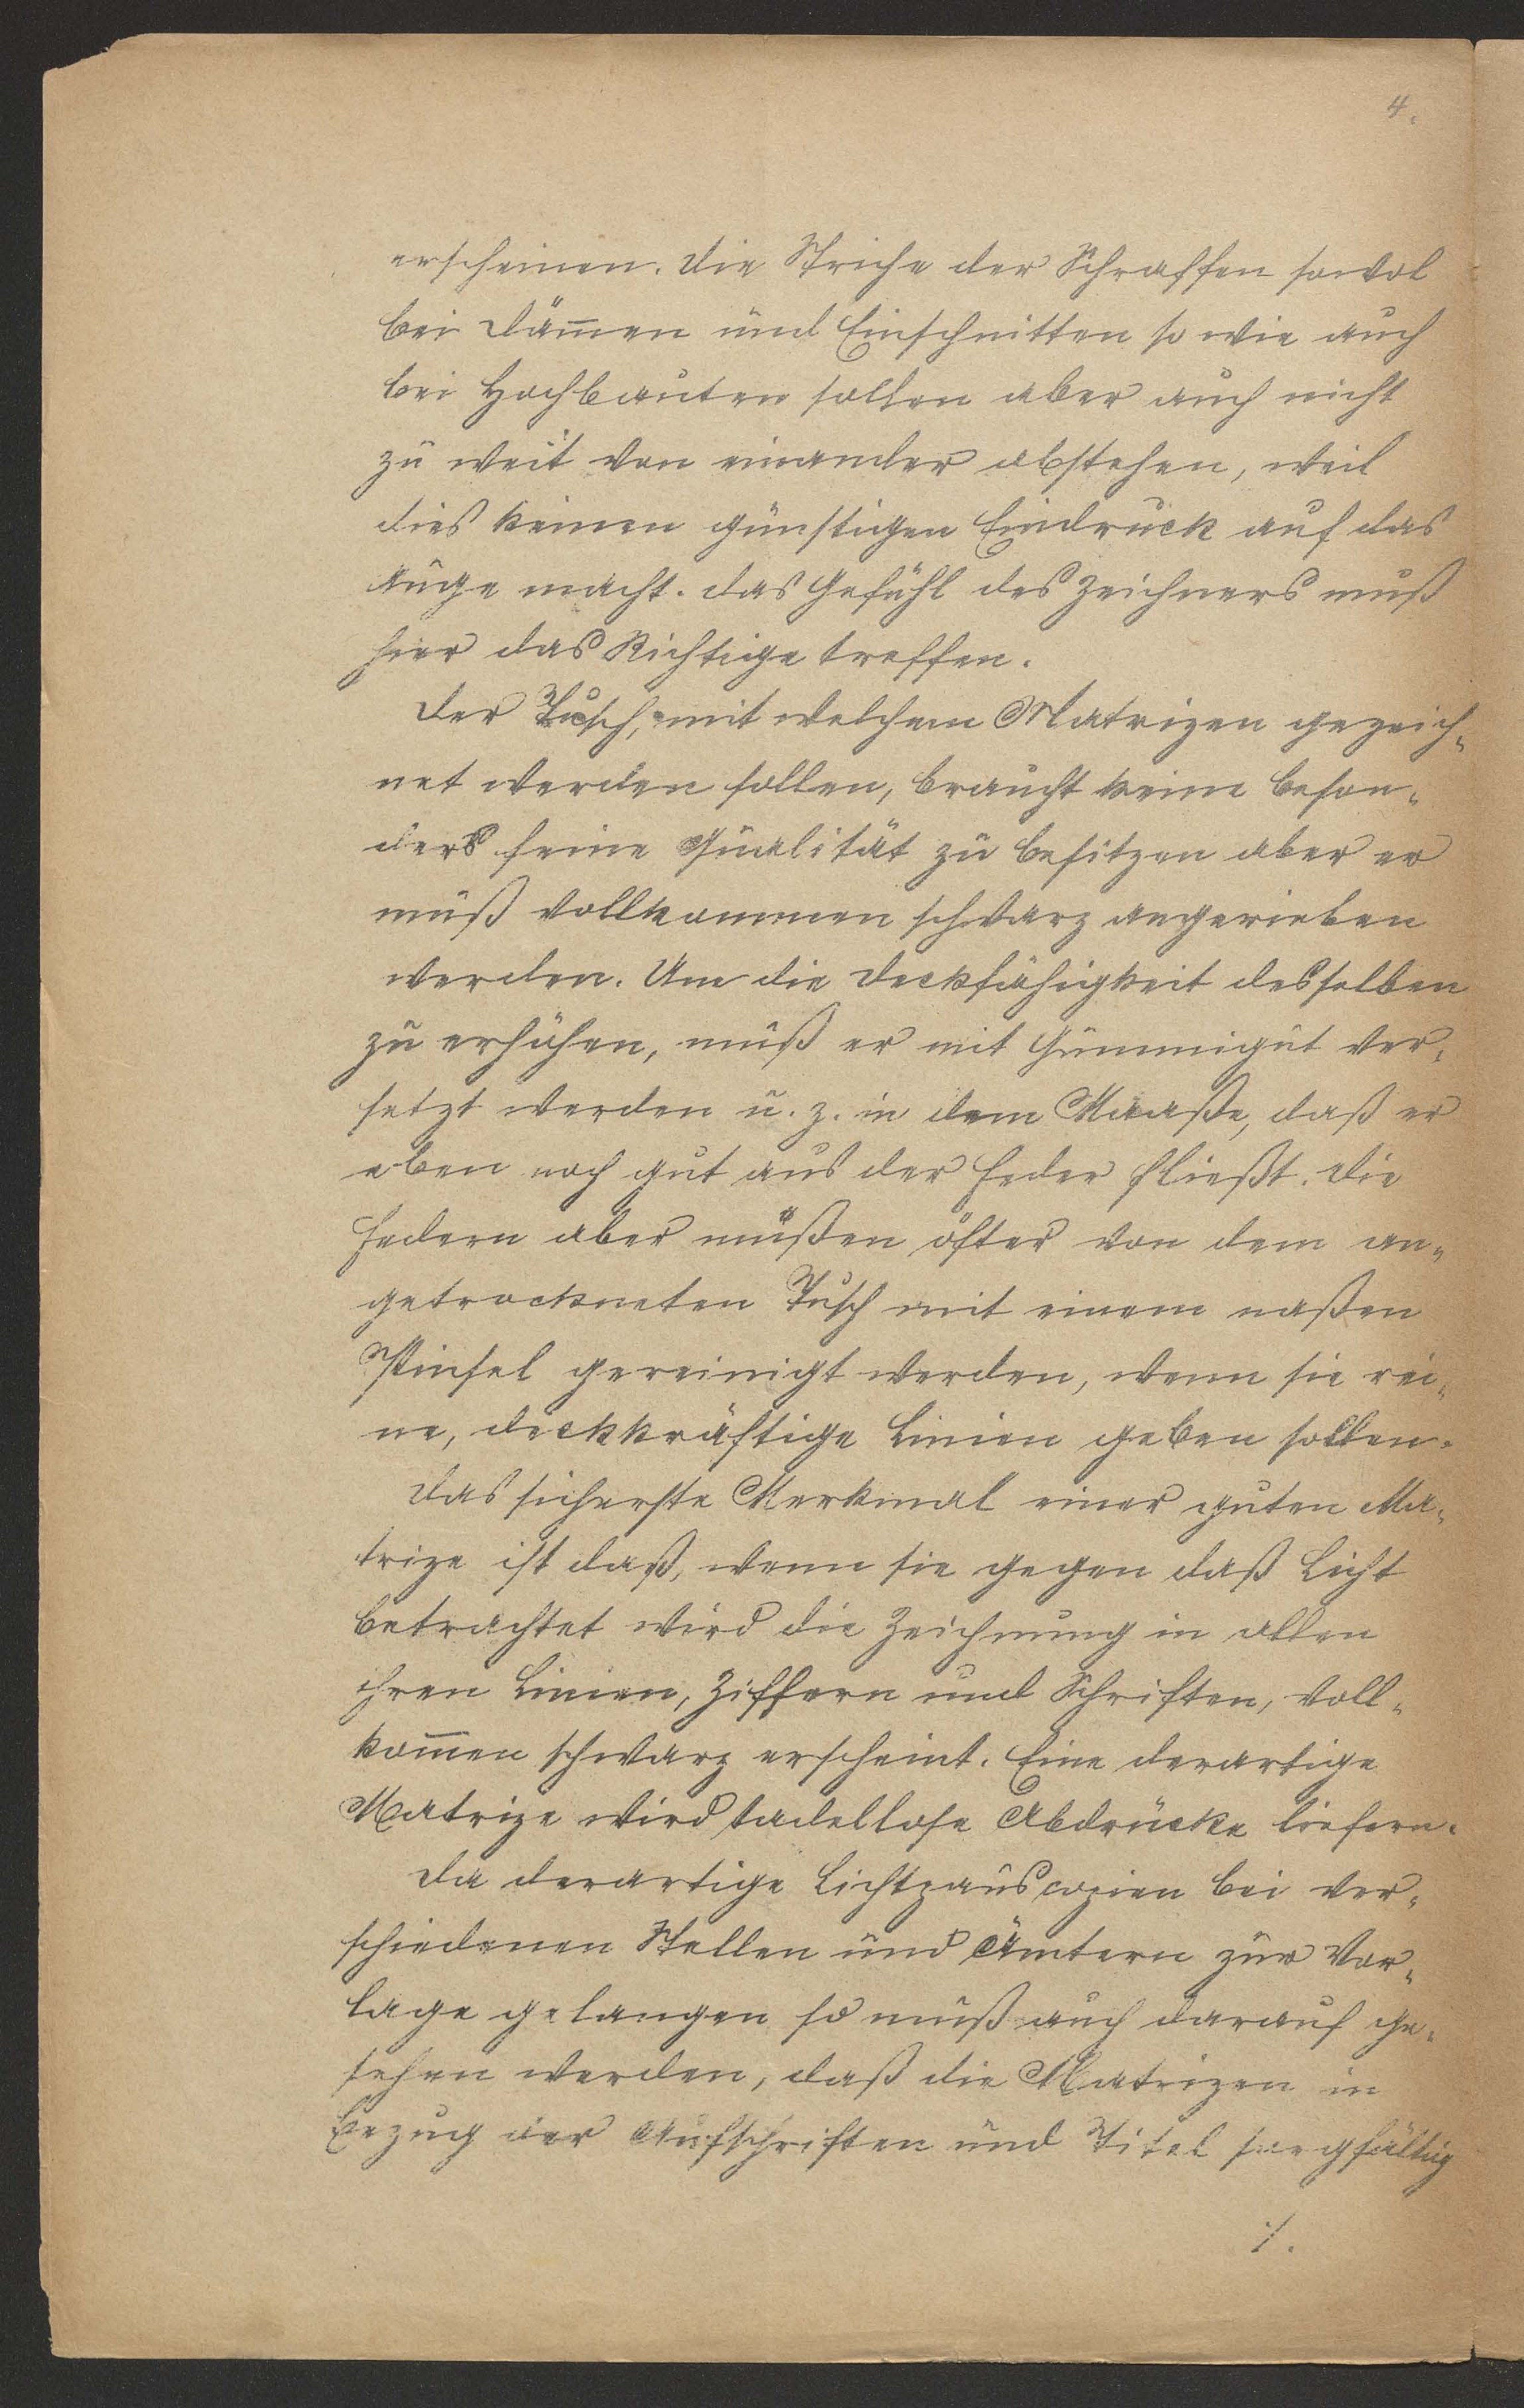 4.
erscheinen. Die Striche der Schraffen sowol
bei Däm̄en und Einschnitten so wie auch
bei Hochbauten sollen aber auch nicht
zu weit von einander abstehen, weil
dies keinen günstigen Eindruck auf das
Auge macht. Das Gefühl des Zeichners muß
hier das Richtige treffen.
Der Tusch, mit welchem Matrizen gezeich-
net werden sollen, braucht keine beson-
ders feine Qualität zu besitzen aber er
muß vollkommen schwarz angerieben
werden. Um die Deckfähigkeit desselben
zu erhöhen, muß er mit Gummigut ver-
setzt werden u. z. in dem Maaße, daß er
eben noch gut aus der Feder fließt. Die
Federn aber müßen öfter von dem an-
getrockneten Tusch mit einem naßen
Pinsel gereinigt werden, wenn sie rei-
ne, deckkräftige Linien geben sollen.
Das sicherste Merkmal einer guten Ma-
trize ist daß, wenn sie gegen daß Licht
betrachtet wird die Zeichnung in allen
ihren Linien, Ziffern und Schriften, voll-
kom̄en schwarz erscheint. Eine derartige
Matrize wird tadellose Abdrücke liefern.
Da derartige Lichtpauscopien bei ver-
schiedenen Stellen und Ämtern zur Vor-
lage gelangen so muß auch darauf ge-
sehen werden, daß die Matrizen in
Bezug der Aufschriften und Titel sorgfältig
./.